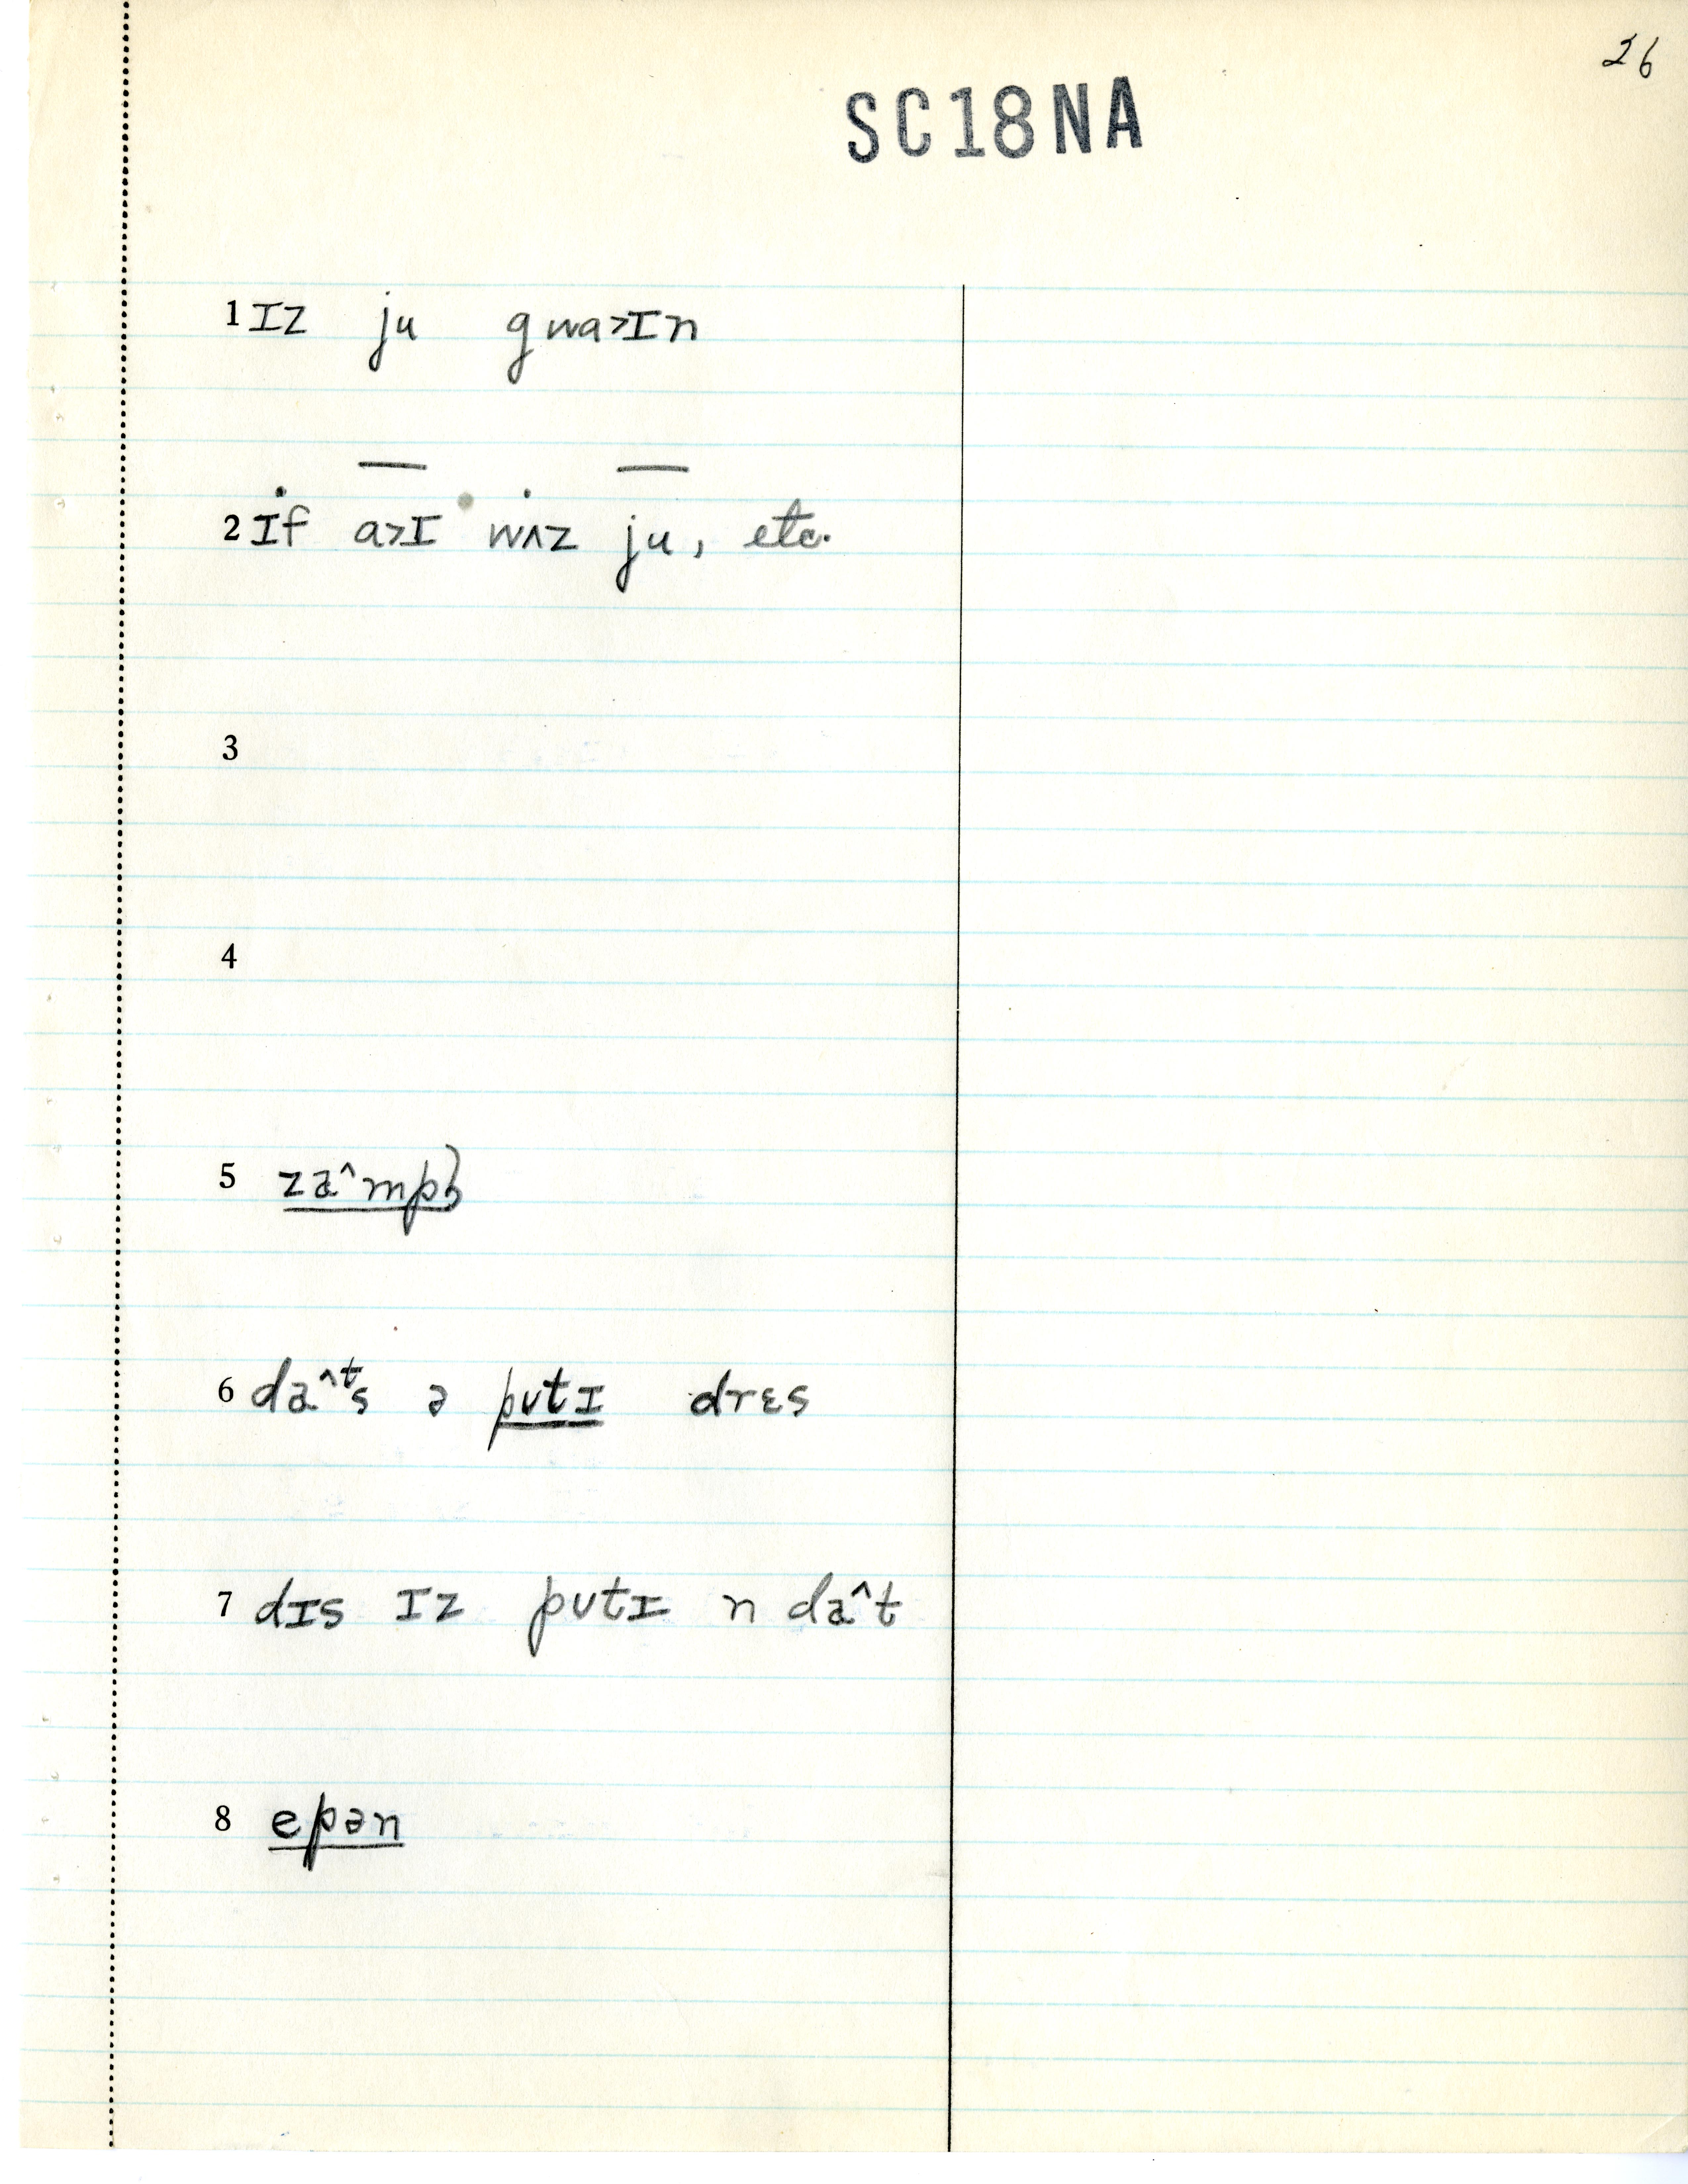 26
SC18NA
1 ɪz ju gwa>ɪn
2 ɪf a>ɪ wʌz ju, etc.
3
4
5
6 da^ts ə pʊtɪ drɛs
7 dɪs ɪz pʊtɪ n da^t
8 epən